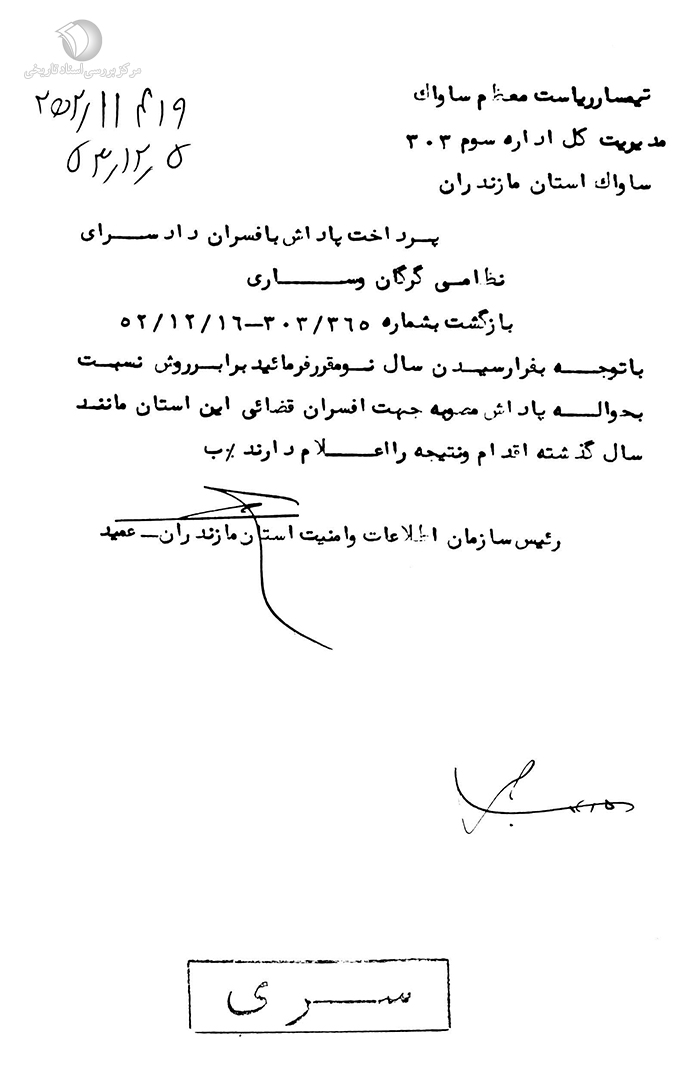 مرکز بررسی اسناد تاریخی
۵۳٫۱۲٫۵
تیمسار ریاست معظم ساواك
مدیریت کل اداره سوم ۳۰۳
ساواك استان مازندران
پرداخت پاداش بافسران دادسرای
نظامی گرگان وساری
بازگشت بشماره ۳۰۳/۳۶۵-۵۲/۱۲/۱۶
باتوجه بفرارسیدن سال نومقررفرمائید برابرروش نسبت
بحواله پاداش مصوبه جهت افسران قضائی این استان مانند
سال گذشته اقدام ونتیجه رااعلام دارند ٪ب
رئیس سازمان اطلاعات وامنیت استان مازندران_ عمید
سری